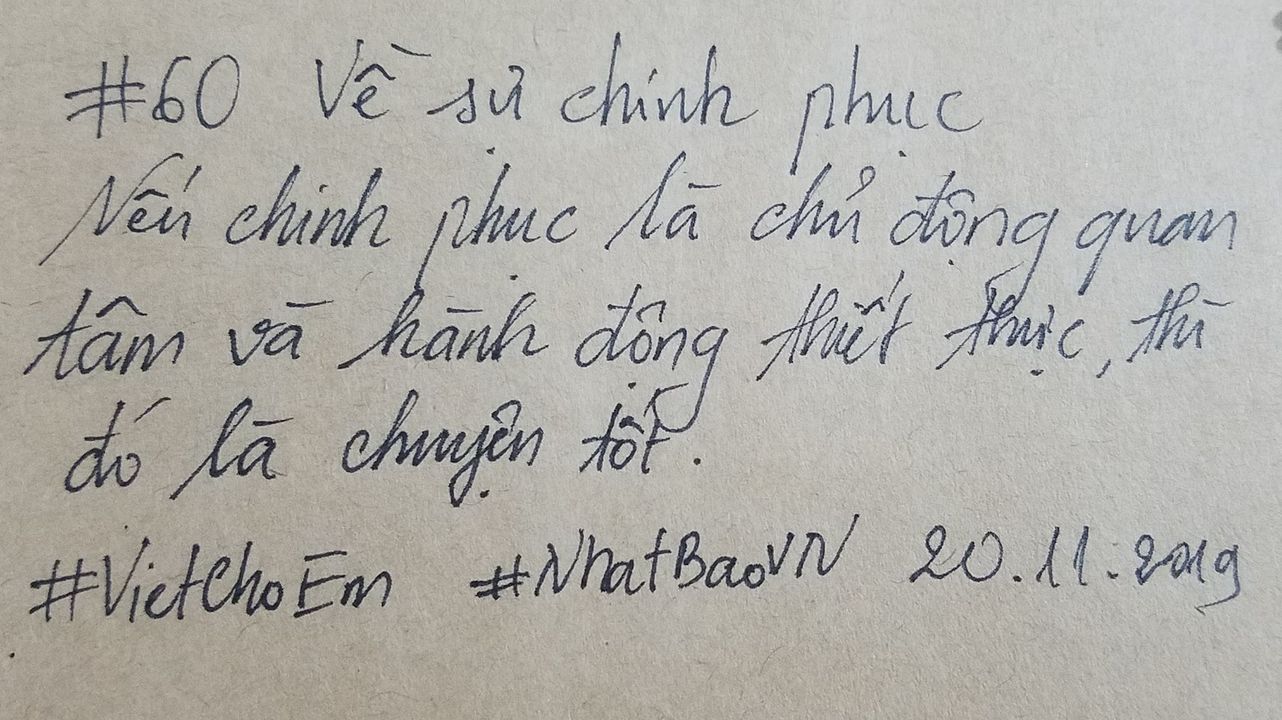 #60 Về sự chinh phục
Nếu chinh phục là chủ động quan
tâm và hành động thiết thực, thì
đó là chuyện tốt.
#VietChoEm #NhatBaoVN 20.11.2019